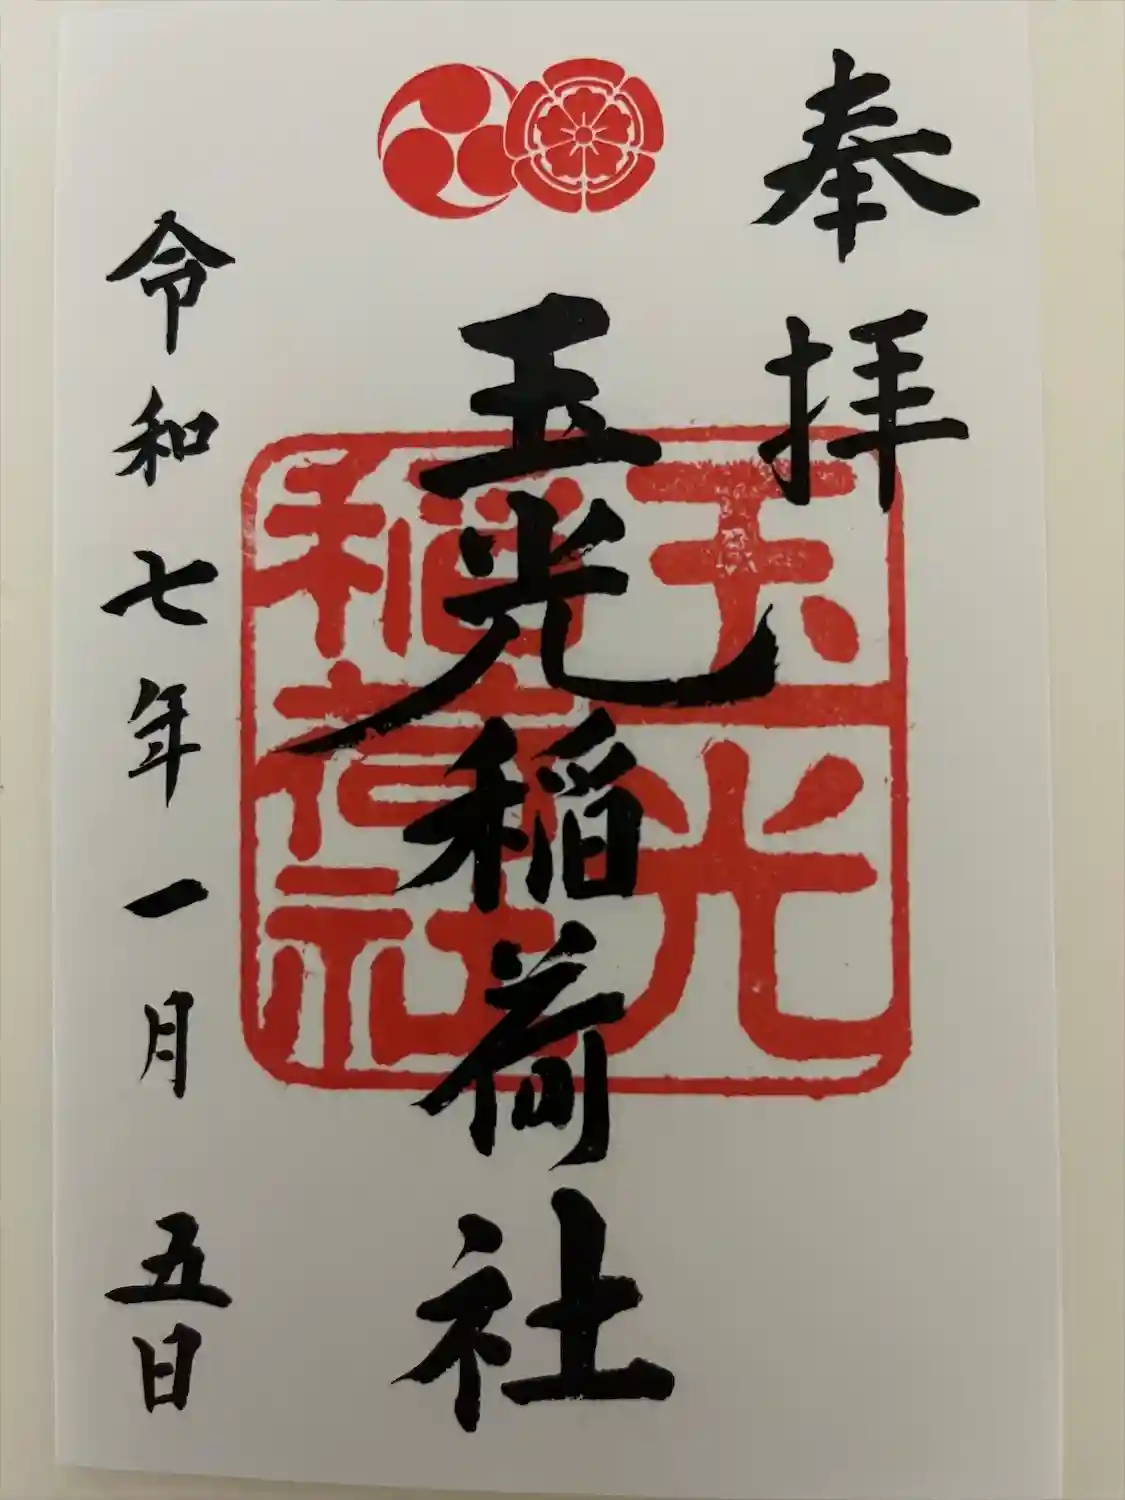 奉拝
玉光稲荷社
玉光
稲荷社
令和七年一月五日